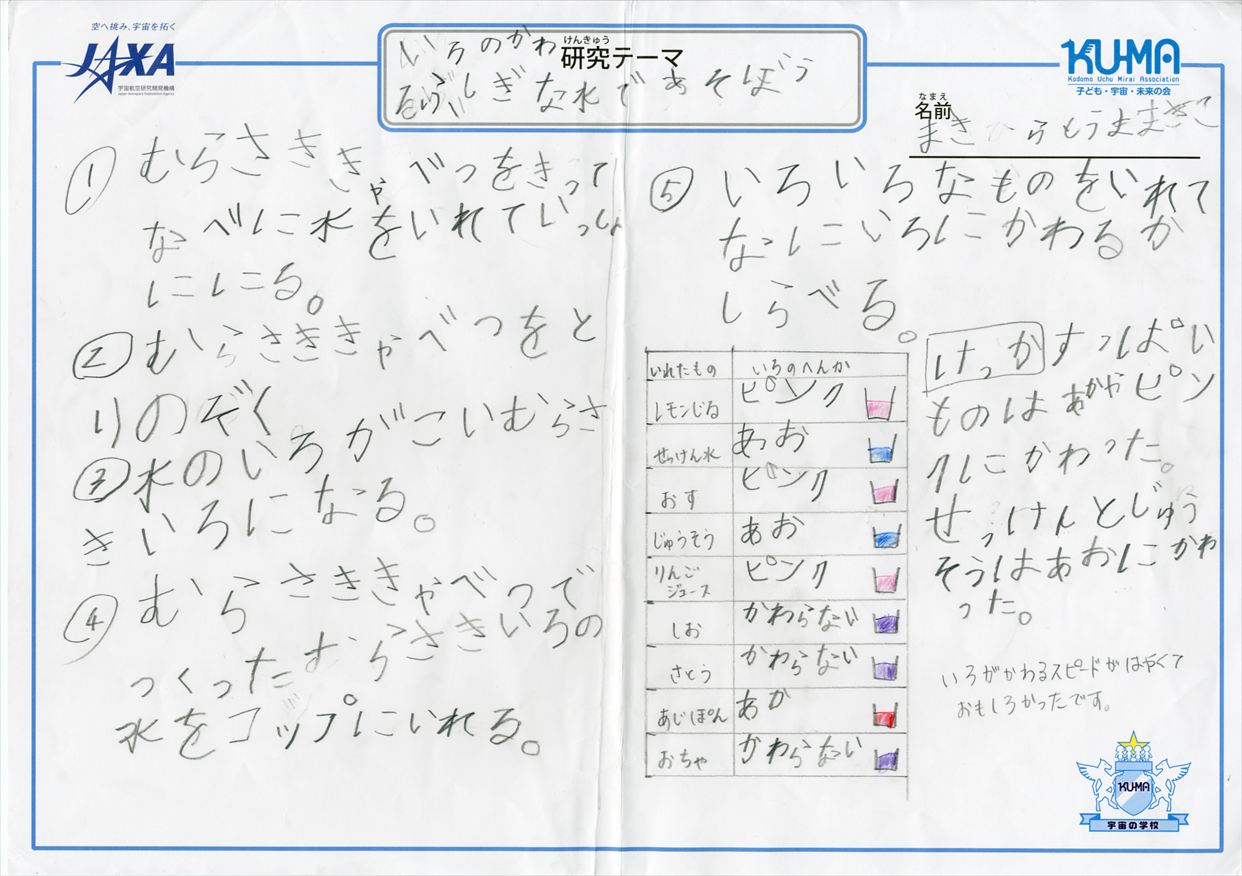 空へ挑み、宇宙を拓く
JAXA
宇宙航空研究開発機構
Japan Aerospace Exploration Agency
けんきゅう
研究テーマ
いろのかわ
るふしぎな水であそぼう
KU-MA
Kodomo Uchu Mirai Association
子ども・宇宙・未来の会
なまえ
名前
① むらさききゃべつをきって
なべに水をいれていっしょ
ににる。
② むらさききゃべつをと
りのぞく
③ 水のいろがこいむらさ
きいろになる。
④ むらさききゃべつで
つくったむらさきいろの
水をコップにいれる。
⑤ いろいろなものをいれて
なにいろにかわるか
しらべる。
いれたもの いろのへんか
レモンじる ピンク
せっけん水 あお
おす ピンク
じゅうそう あお
りんごジュース ピンク
しお かわらない
さとう かわらない
あじぽん あか
おちゃ かわらない
けっか すっぱい
ものはあかやピン
クにかわった。
せっけんとじゅう
そうはあおにかわ
った。
いろがかわるスピードがはやくて
おもしろかったです。
KU-MA
宇宙の学校